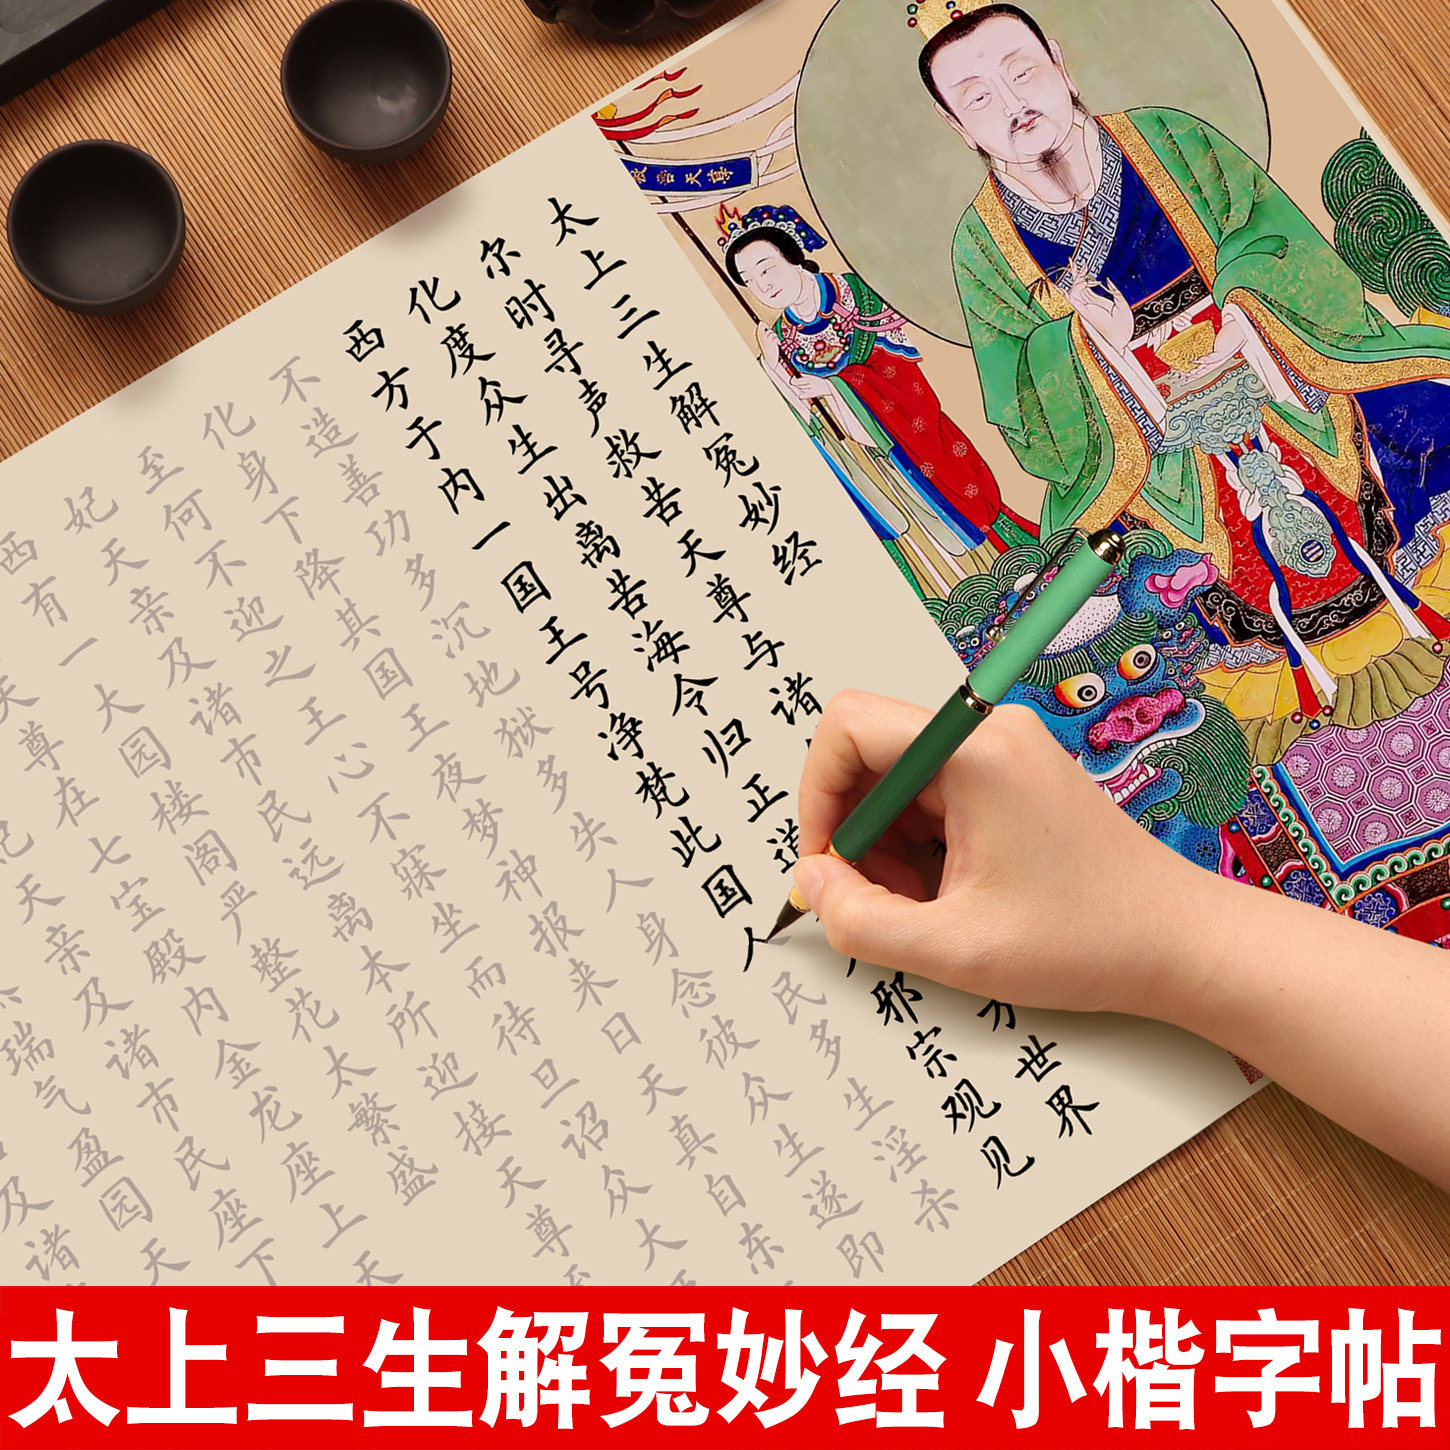 救苦天尊
太上三生解冤妙经
尔时寻声救苦天尊与诸
世界
化度众生出离苦海令归正道
邪宗观见
西方于内一国王号净梵此国人民多生淫杀
不造善功多沉地狱多失人身念彼众生遂即
化身下降其国王夜梦神报来日天真自东
至何不迎之王心不寐坐而待旦诏众大
妃天亲及诸市民远离本所迎接天尊至
西有一大园楼阁严整花太繁盛
天尊在七宝殿内金龙座上天
妃天亲及诸市民座下
瑞气盈园天
及诸
太上三生解冤妙经 小楷字帖